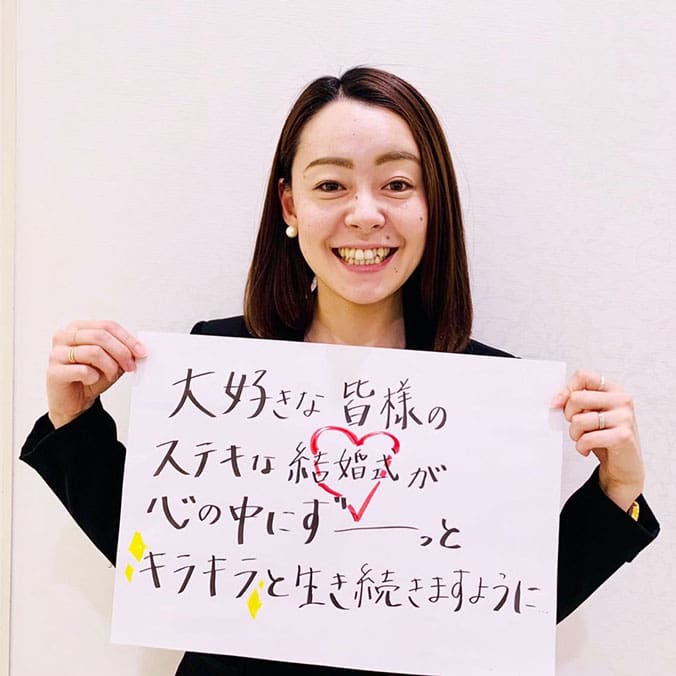 大好きな 皆様の
ステキな 結婚式が
心の中にず──っと
キラキラと生き続きますように…